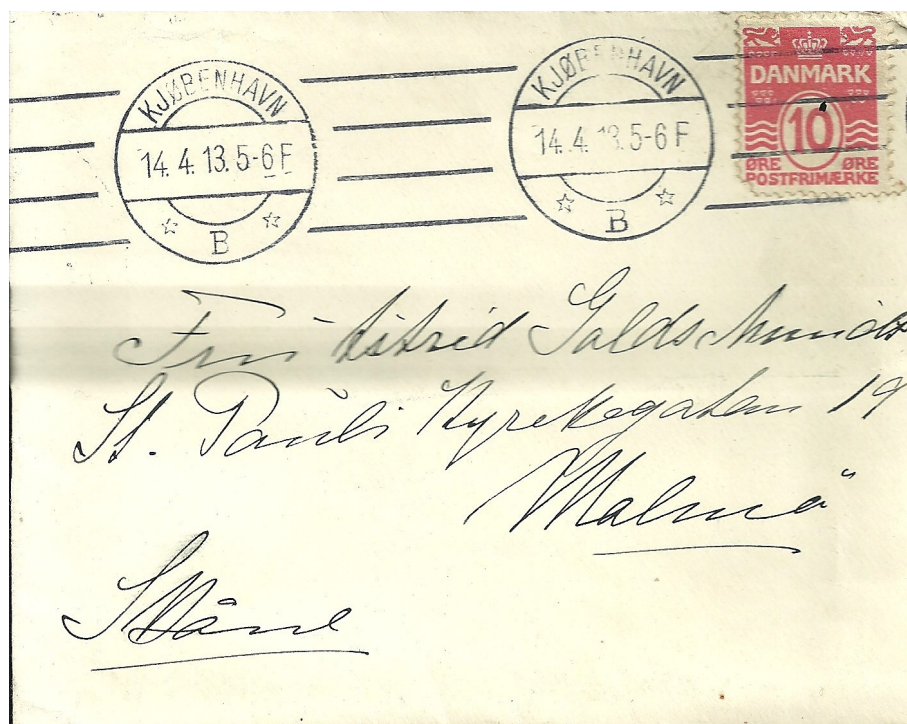 KJØBENHAVN
14.4.13.5-6F
B
KJØBENHAVN
14.4.13.5-6F
B
DANMARK
10
ØRE ØRE
POSTFRIMÆRKE
Fru Astrid Goldschmidt
St. Pauli Kyrkogatan 19
Malmö
Skåne